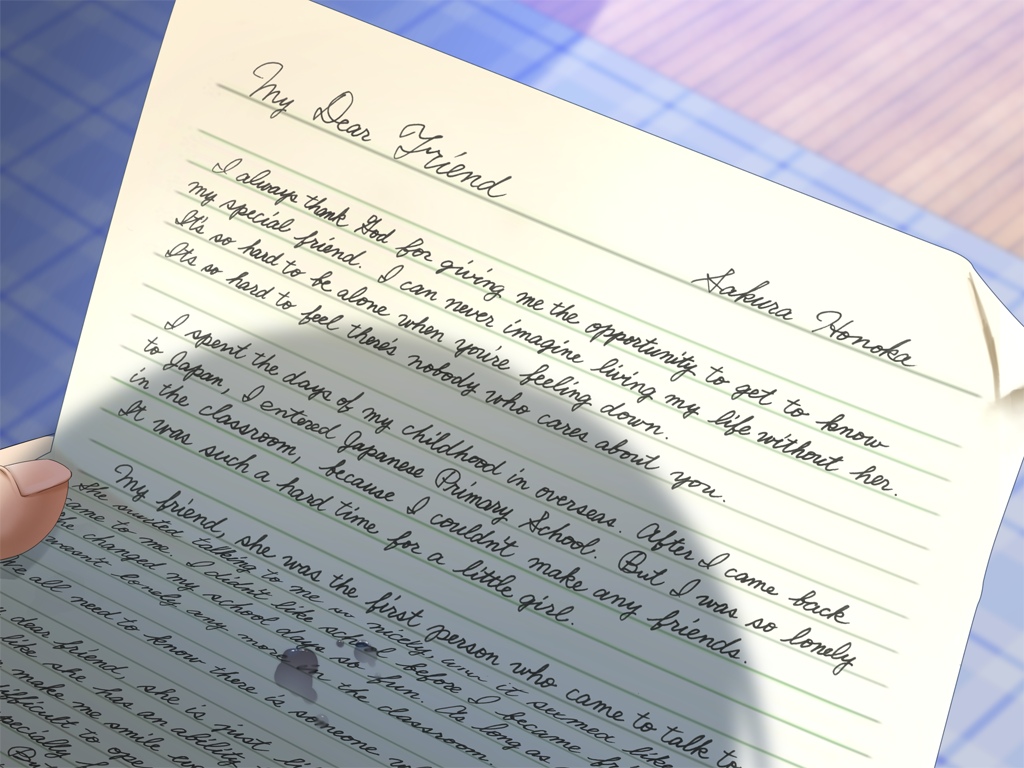 My Dear Friend
Sakura Honoka
I always thank God for giving me the opportunity to get to know
my special friend. I can never imagine living my life without her.
It's so hard to be alone when you're feeling down.
It's so hard to feel there's nobody who cares about you.
I spent the days of my childhood in overseas. After I came back
to Japan, I entered Japanese Primary School. But I was so lonely
in the classroom, because I couldn't make any friends.
It was such a hard time for a little girl.
My friend, she was the first person who came to talk to
She started talking to me so nicely and it seemed like
came to me. I didn't like school before I became
changed my school days so fun. As long as
haven't lonely any more in the classroom.
all need to know there is someone
dear friend, she is just
like she has an ability
make me smile
difficult to ope
specially
But